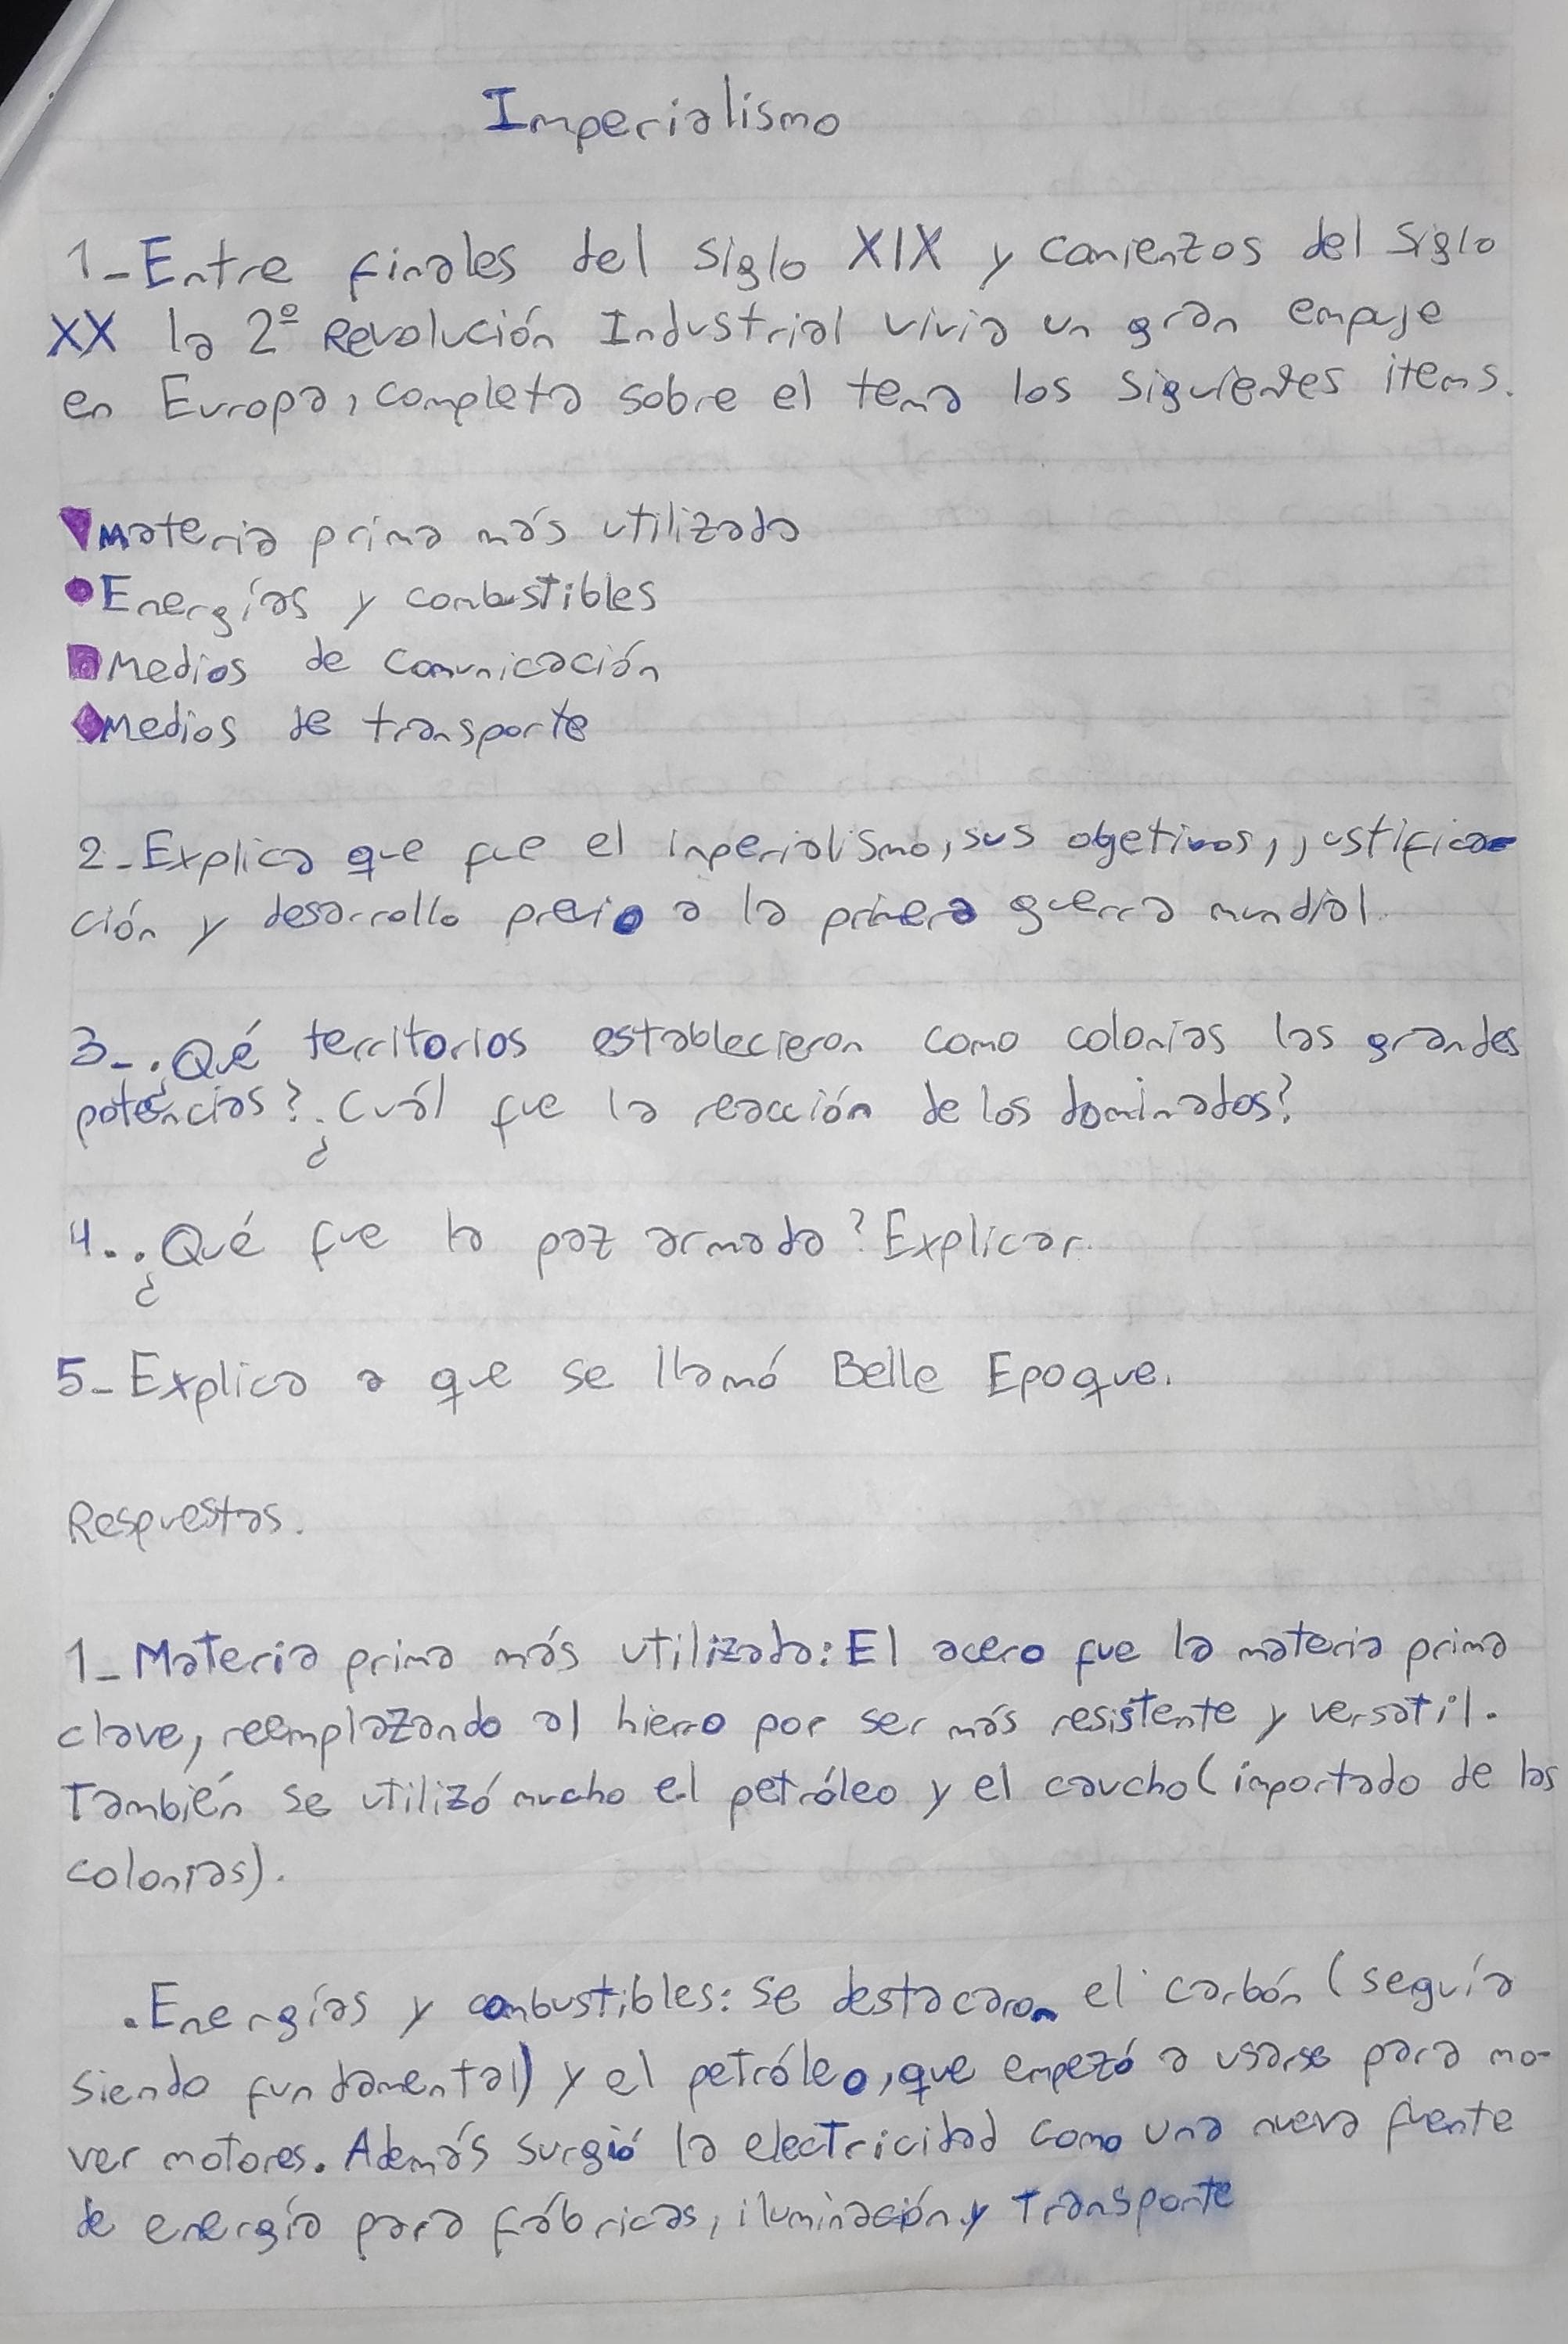 Imperialismo
1-Entre finales del siglo XIX y comienzos del siglo
XX la 2º Revolución Industrial vivia un gran empuje
en Europa, completa sobre el tema los siguientes items.
Materia prima más utilizada
Energías y combustibles
Medios de comunicación
Medios de transporte
2-Explica que fue el imperialismo, sus objetivos, justifica-
ción y desarrollo previo a la primera guerra mundial.
3-¿Qué territorios establecieron como colonias las grandes
potencias? ¿Cuál fue la reacción de los dominados?
4.¿Qué fue la paz armada? Explicar.
5-Explica a que se llamó Belle Epoque.
Respuestas.
1-Materia prima más utilizada: El acero fue la materia prima
clave, reemplazando al hierro por ser más resistente y versatil.
También se utilizó mucho el petróleo y el caucho (importado de las
colonias).
.Energías y combustibles: se destacaron el carbón (seguía
siendo fundamental) y el petróleo, que empezó a usarse para mo-
ver motores. Además surgió la electricidad como una nueva fuente
de energía para fábricas, iluminación y transporte